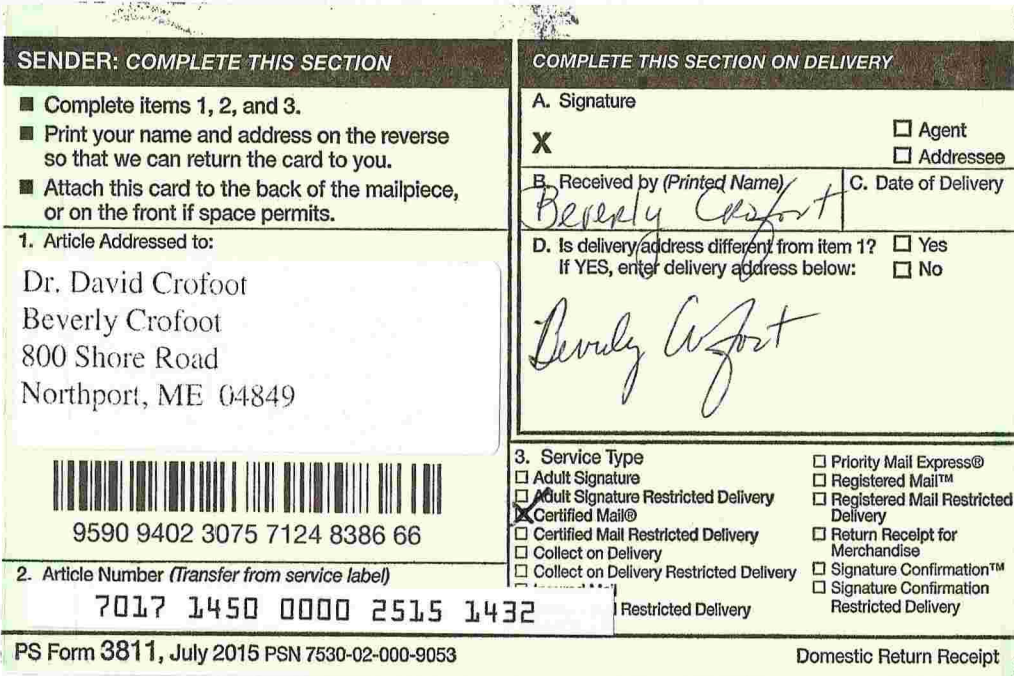 SENDER: COMPLETE THIS SECTION
■ Complete items 1, 2, and 3.
■ Print your name and address on the reverse
so that we can return the card to you.
■ Attach this card to the back of the mailpiece,
or on the front if space permits.
1. Article Addressed to:
Dr. David Crofoot
Beverly Crofoot
800 Shore Road
Northport, ME 04849
9590 9402 3075 7124 8386 66
2. Article Number (Transfer from service label)
7017 1450 0000 2515 1432
COMPLETE THIS SECTION ON DELIVERY
A. Signature
X
☐ Agent
☐ Addressee
B. Received by (Printed Name)
Beverly Crofoot
C. Date of Delivery
D. Is delivery address different from item 1? ☐ Yes
If YES, enter delivery address below: ☐ No
Beverly Crofoot
3. Service Type
☐ Adult Signature
☐ Adult Signature Restricted Delivery
☒ Certified Mail®
☐ Certified Mail Restricted Delivery
☐ Collect on Delivery
☐ Collect on Delivery Restricted Delivery
Restricted Delivery
☐ Priority Mail Express®
☐ Registered Mail™
☐ Registered Mail Restricted
Delivery
☐ Return Receipt for
Merchandise
☐ Signature Confirmation™
☐ Signature Confirmation
Restricted Delivery
PS Form 3811, July 2015 PSN 7530-02-000-9053
Domestic Return Receipt